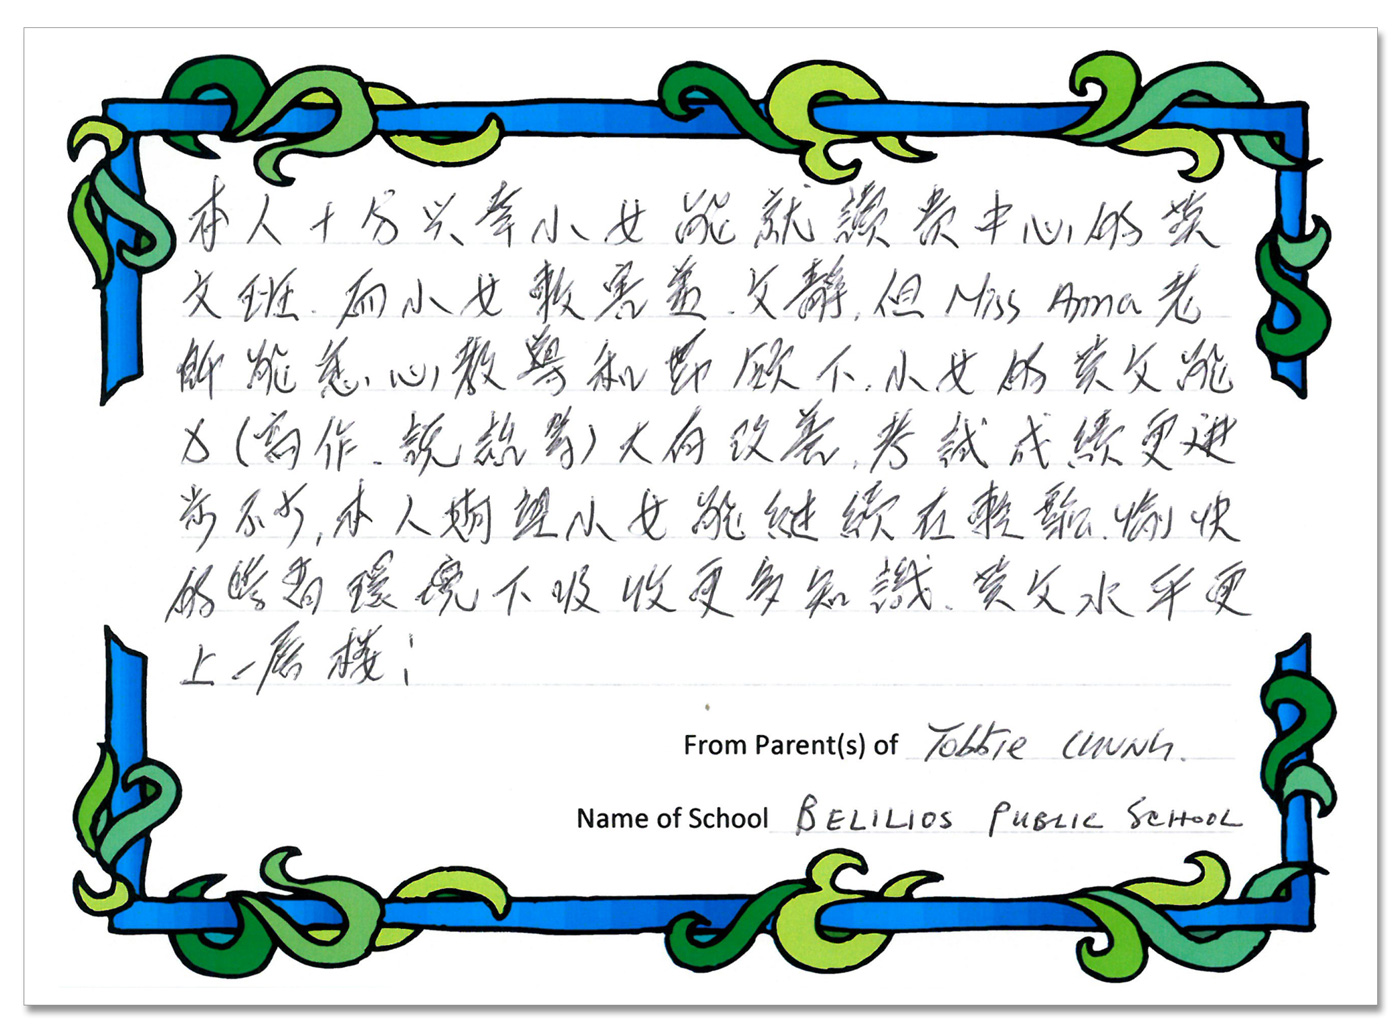 本人十分兴幸小女能就讀貴中心的英
文班.而小女較害羞.文靜,但Miss Anna老
師能悉心教導和照顧下.小女的英文能
力(寫作.說話等)大有改善,考試成績更進
步不少,本人期望小女能繼續在輕鬆.愉快
的學習環境下吸收更多知識.英文水平更
上一層樓!
From Parent(s) of Tobbie CHUNG.
Name of School BELILIOS PUBLIC SCHOOL